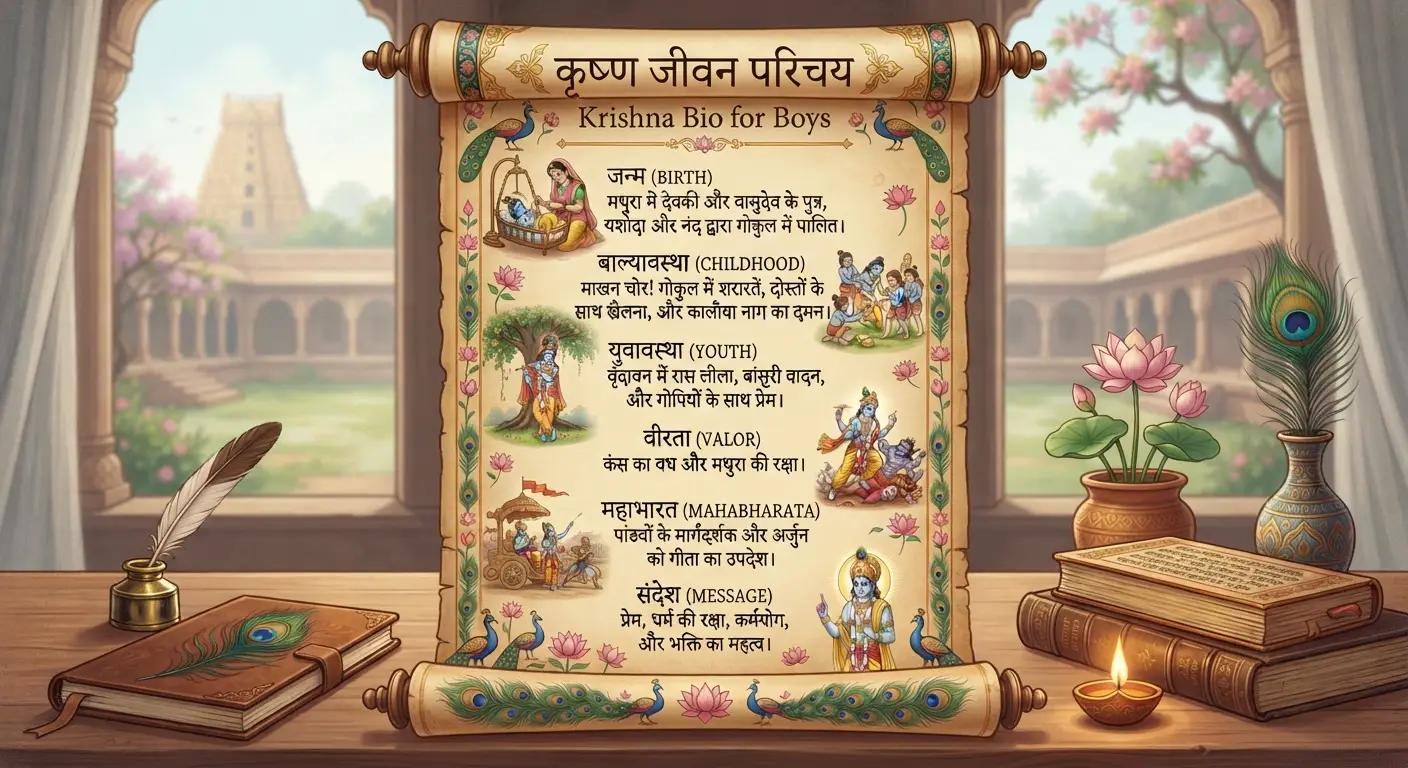 कृष्ण जीवन परिचय
Krishna Bio for Boys
जन्म (BIRTH)
मथुरा में देवकी और वासुदेव के पुत्र,
यशोदा और नंद द्वारा गोकुल में पालित।
बाल्यावस्था (CHILDHOOD)
माखन चोर! गोकुल में शरारतें, दोस्तों के
साथ खेलना, और कालीया नाग का दमन।
युवावस्था (YOUTH)
वृंदावन में रास लीला, बांसुरी वादन,
और गोपियों के साथ प्रेम।
वीरता (VALOR)
कंस का वध और मथुरा की रक्षा।
महाभारत (MAHABHARATA)
पांडवों के मार्गदर्शक और अर्जुन
को गीता का उपदेश।
संदेश (MESSAGE)
प्रेम, धर्म की रक्षा, कर्मयोग,
और भक्ति का महत्व।